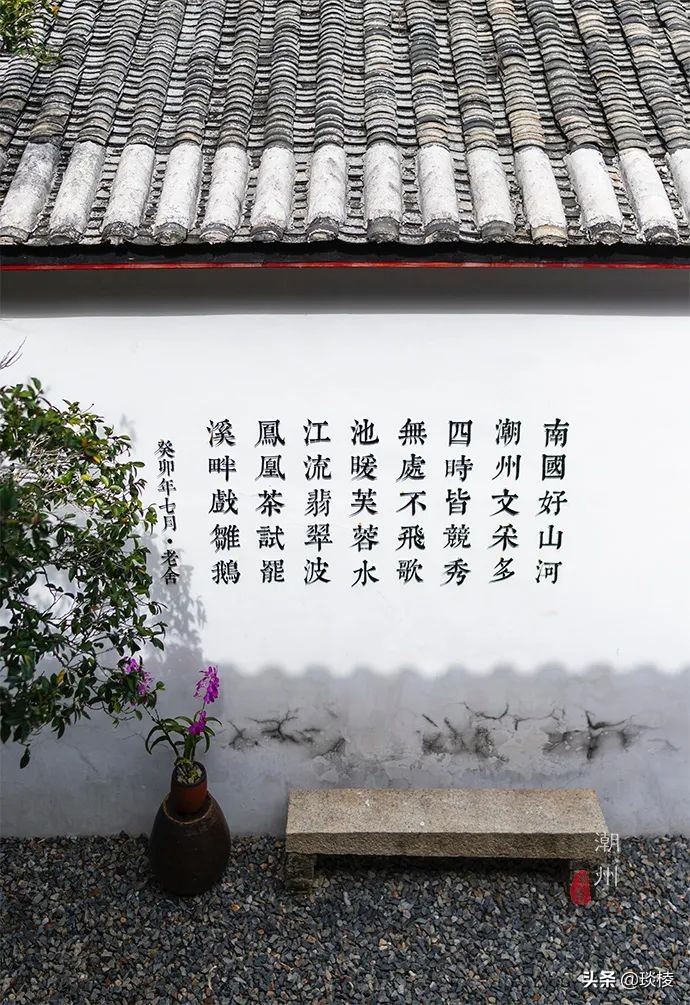 南國好山河
潮州文采多
四時皆競秀
無處不飛歌
池暖芙蓉水
江流翡翠波
鳳凰茶試罷
溪畔戲雛鵝
癸卯年七月·老舍
潮州
头条@琰棱